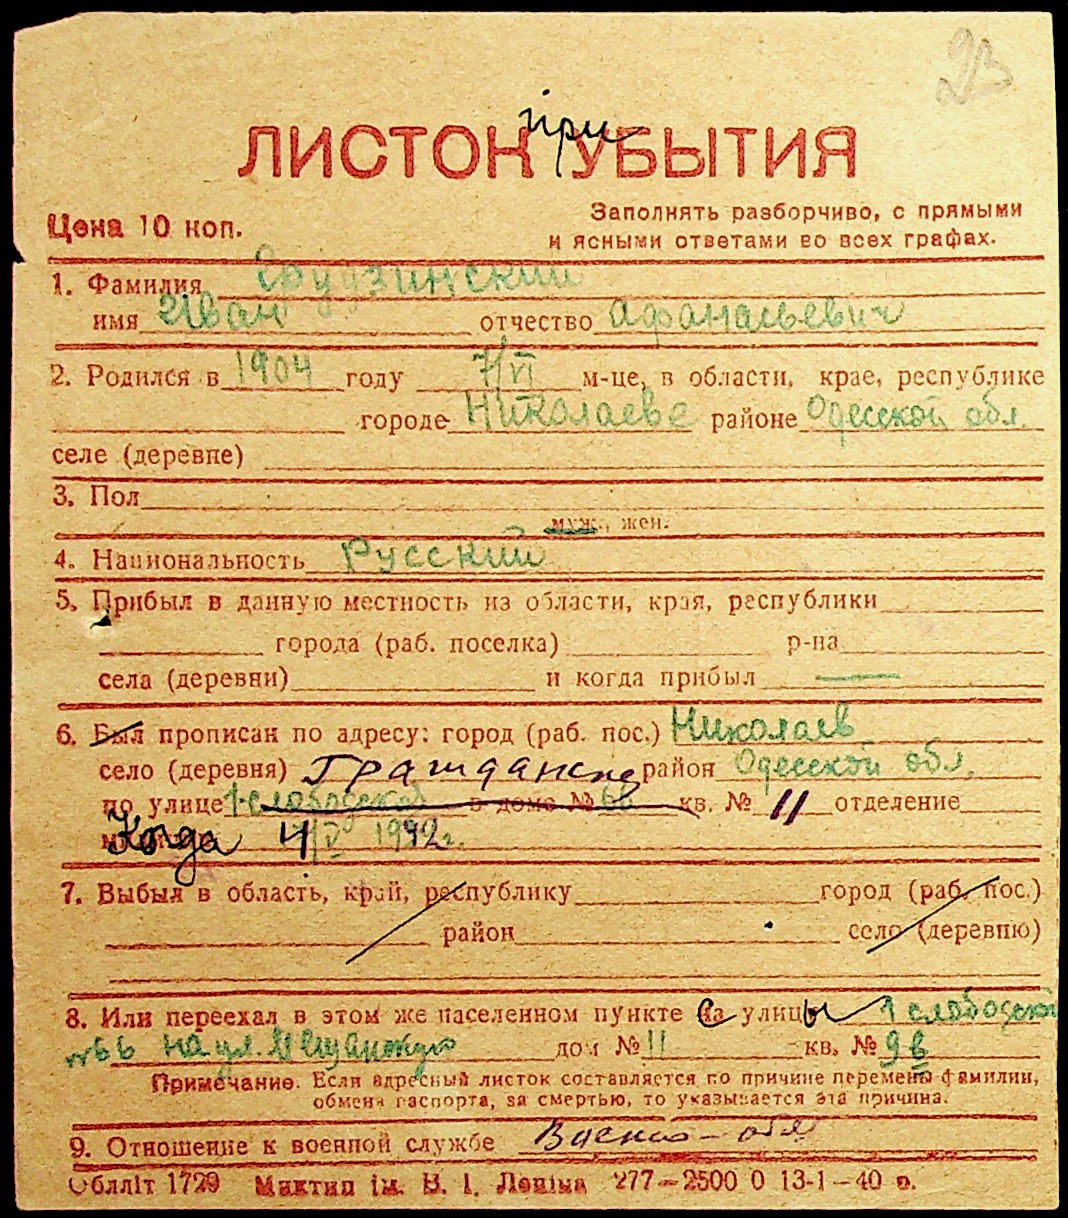 23
при
ЛИСТОК УБЫТИЯ
Цена 10 коп.
Заполнять разборчиво, с прямыми
и ясными ответами во всех графах.
1. Фамилия Грудзинский
имя Иван отчество Афанасьевич
2. Родился в 1904 году 7/VI м-це, в области, крае, республике
городе Николаеве районе Одесской обл.
селе (деревне)
3. Пол
муж., жен.
4. Национальность Русский
5. Прибыл в данную местность из области, края, республики
города (раб. поселка) р-на
села (деревни) и когда прибыл
6. Был прописан по адресу: город (раб. пос.) Николаев
село (деревня) Гражданск район Одесской обл.
по улице 1 слободской в доме № 66 кв. № 11 отделение
Когда 4/V 1942г.
7. Выбыл в область, край, республику город (раб. пос.)
район село (деревню)
8. Или переехал в этом же населенном пункте с улицы 1 слободской
№66 на ул. Мещанскую дом № 11 кв. № 9в
Примечание. Если адресный листок составляется по причине перемены фамилии,
обмена паспорта, за смертью, то указывается эта причина.
9. Отношение к военной службе Военно-обя
Облліт 1729 Миктип ім. В. І. Леніна 277—2500 0 13-1—40 р.